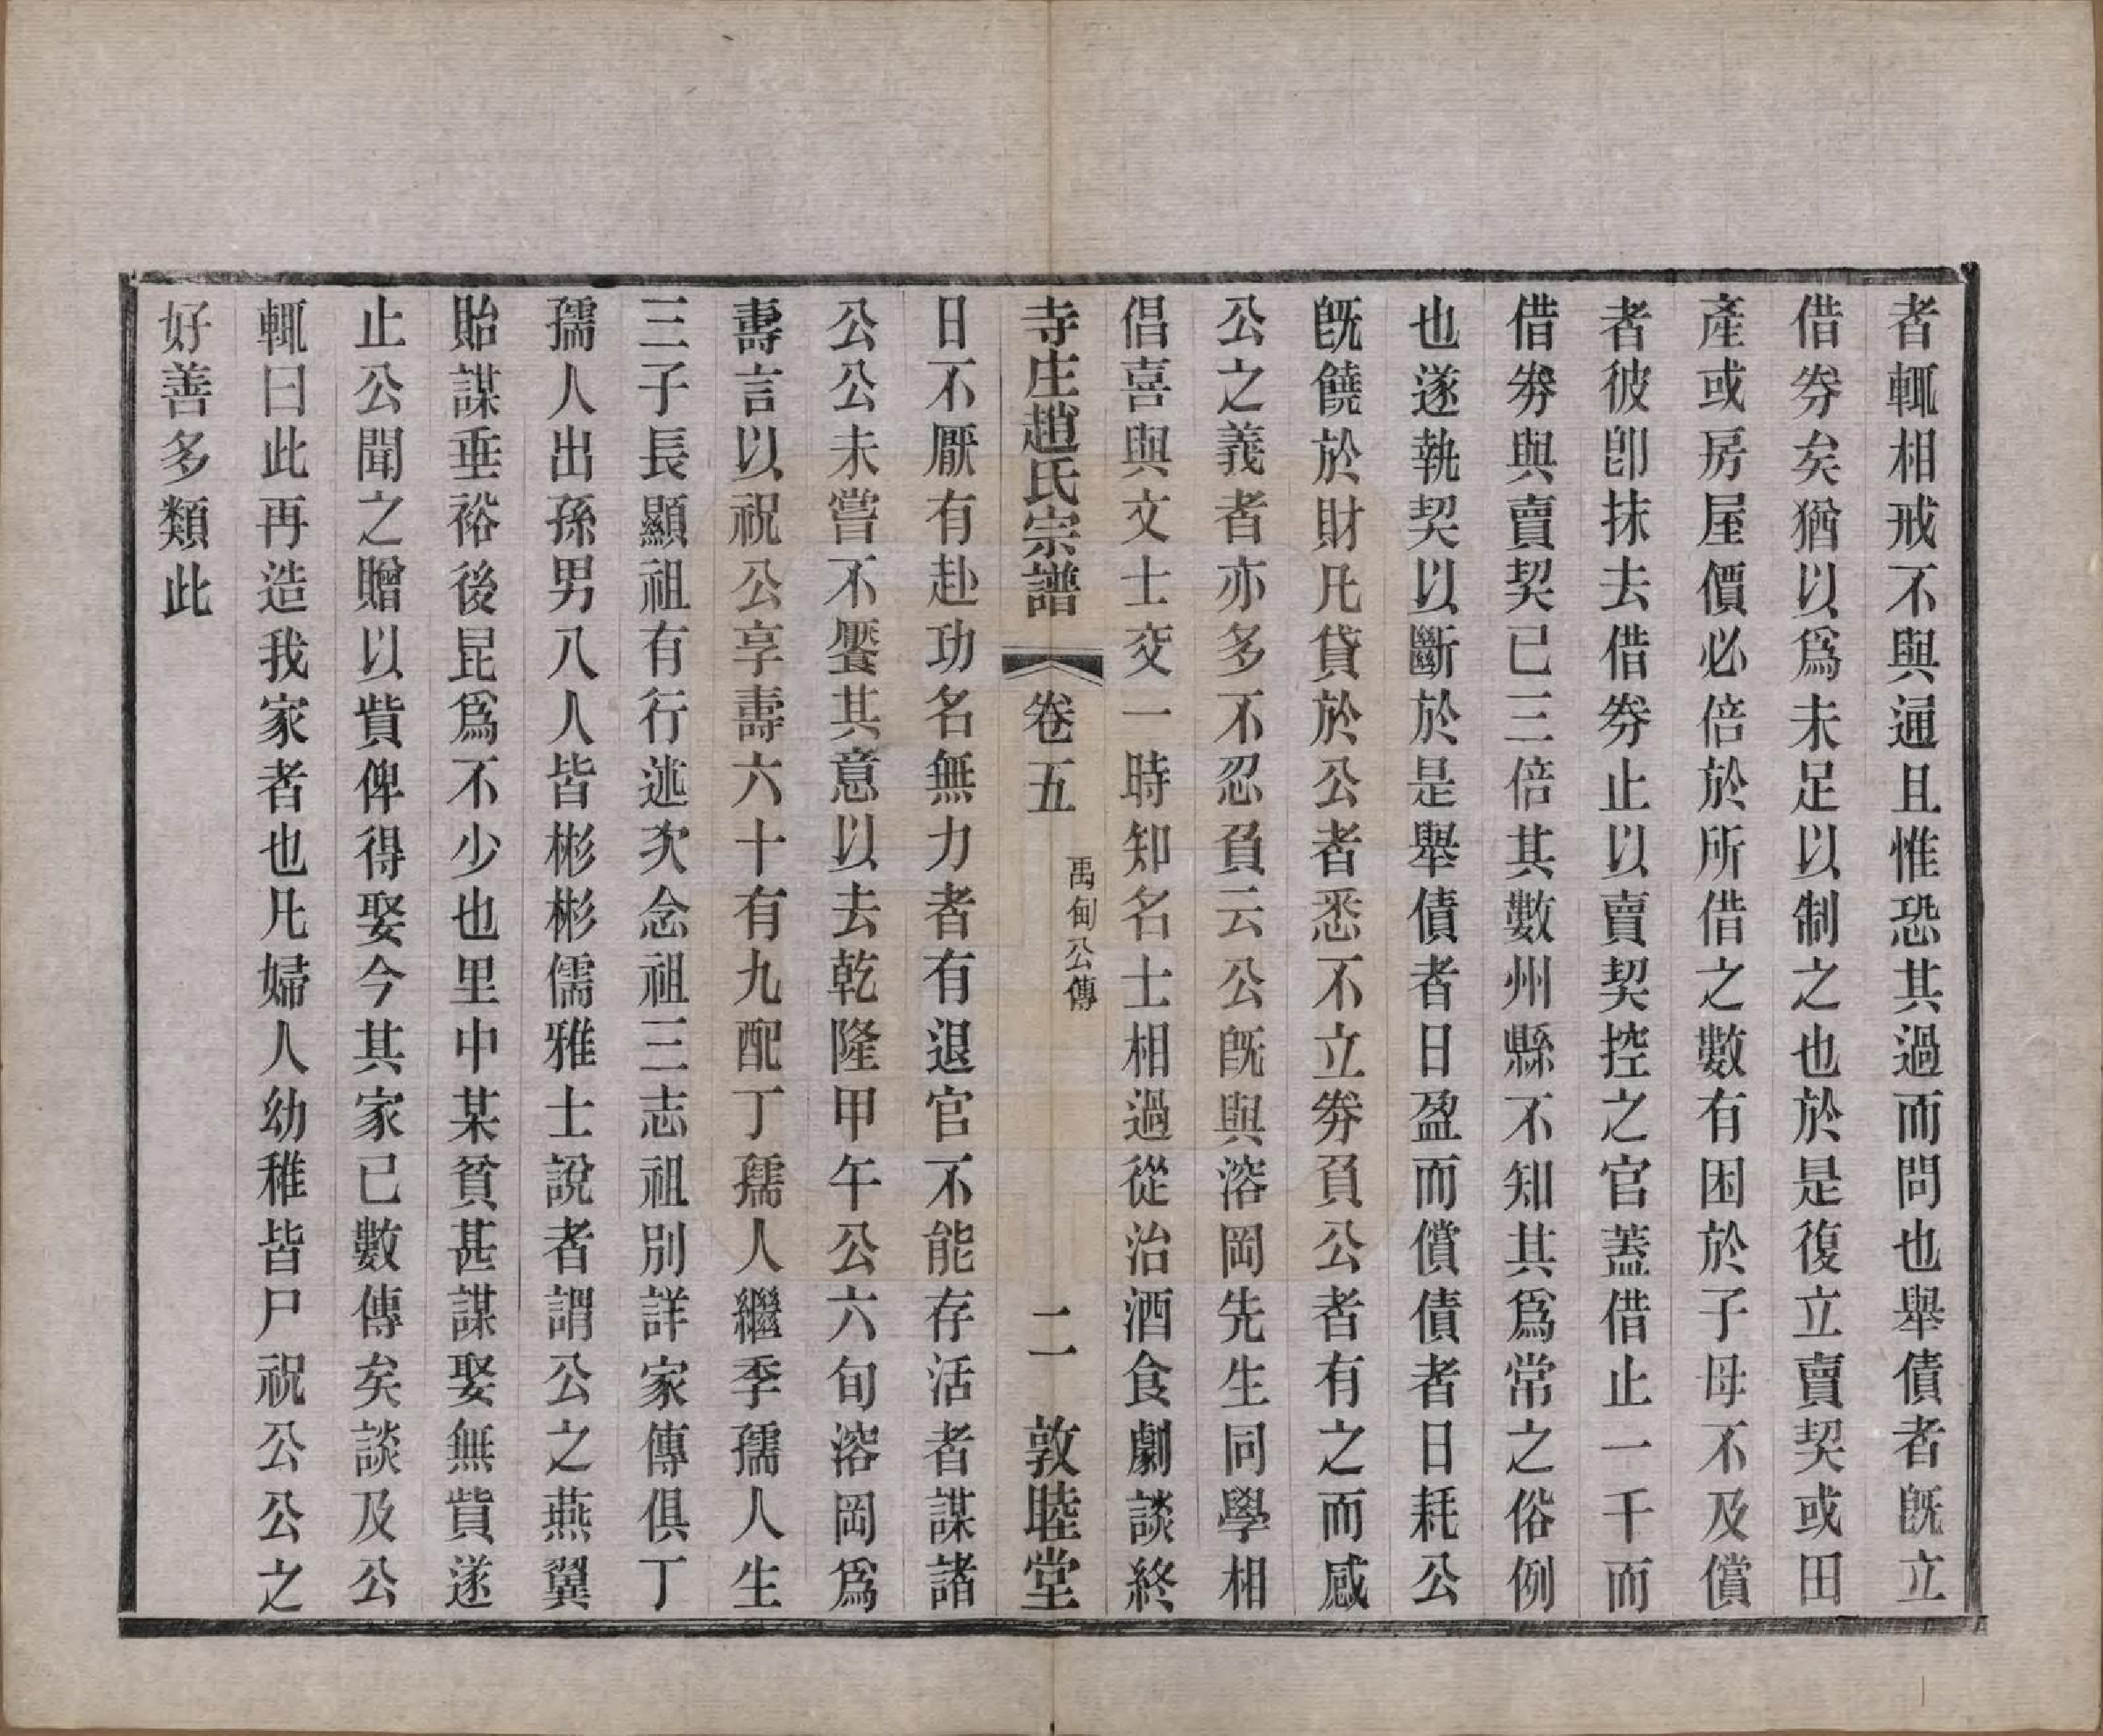 者輒相戒不與通且惟恐其過而問也舉債者旣立
借券矣猶以爲未足以制之也於是復立賣契或田
產或房屋價必倍於所借之數有困於子母不及償
者彼卽抹去借券止以賣契控之官蓋借止一千而
借券與賣契已三倍其數州縣不知其爲常之俗例
也遂執契以斷於是舉債者日盈而償債者日耗公
旣饒於財凡貸於公者悉不立券負公者有之而感
公之義者亦多不忍負云公旣與溶岡先生同學相
倡喜與文士交一時知名士相過從治酒食劇談終
寺庄趙氏宗譜 卷五 禹甸公傳 二 敦睦堂
日不厭有赴功名無力者有退官不能存活者謀諸
公公未嘗不饜其意以去乾隆甲午公六旬溶岡爲
壽言以祝公享壽六十有九配丁孺人繼季孺人生
三子長顯祖有行述次念祖三志祖別詳家傳俱丁
孺人出孫男八人皆彬彬儒雅士說者謂公之燕翼
貽謀垂裕後昆爲不少也里中某貧甚謀娶無貲遂
止公聞之贈以貲俾得娶今其家已數傳矣談及公
輒曰此再造我家者也凡婦人幼稚皆尸祝公公之
好善多類此